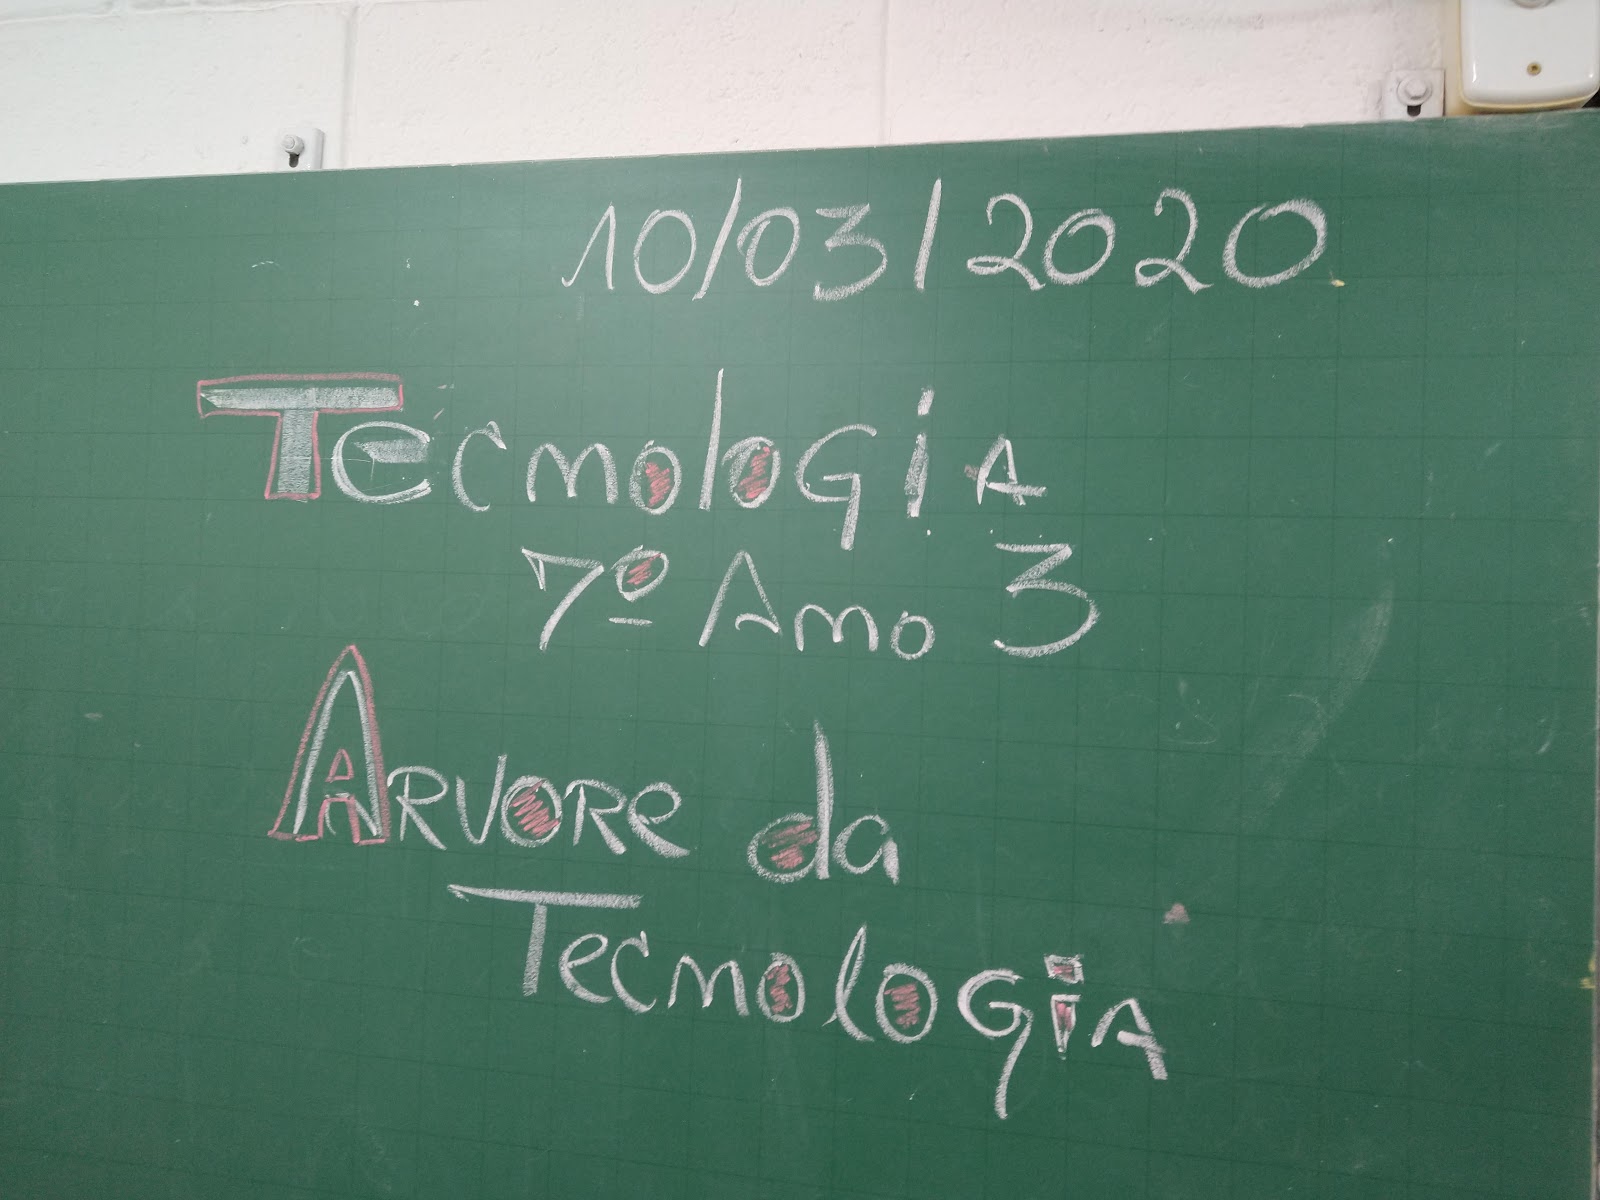 10/03/2020
Tecnologia
7º Ano 3
Arvore da
Tecnologia